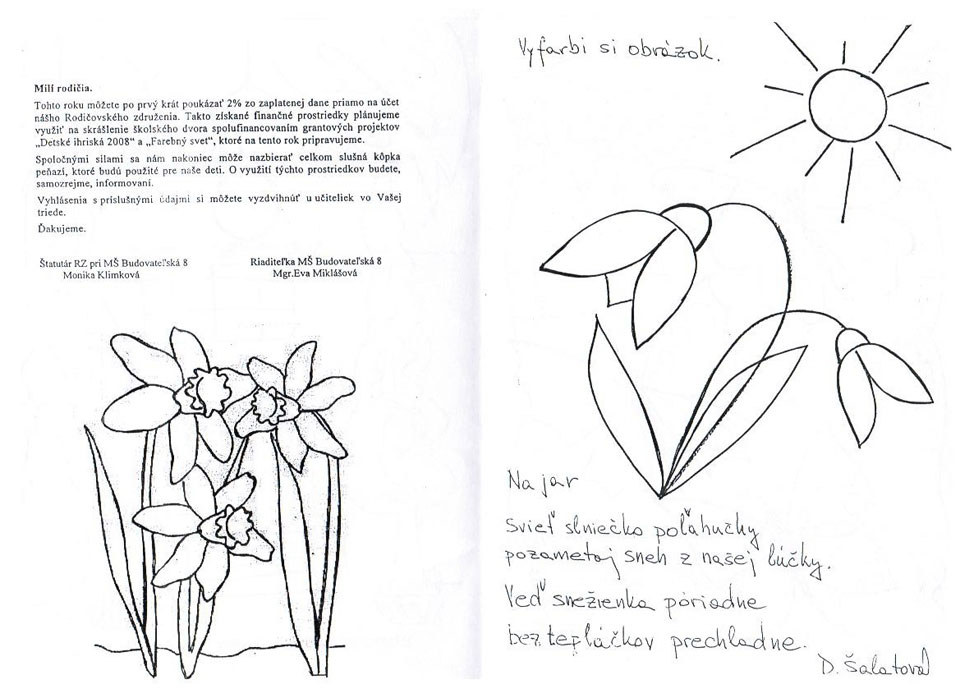 Milí rodičia.
Tohto roku môžete po prvý krát poukázať 2% zo zaplatenej dane priamo na účet
nášho Rodičovského združenia. Takto získané finančné prostriedky plánujeme
využiť na skrášlenie školského dvora spolufinancovaním grantových projektov
„Detské ihriská 2008“ a „Farebný svet“, ktoré na tento rok pripravujeme.
Spoločnými silami sa nám nakoniec môže nazbierať celkom slušná kôpka
peňazí, ktoré budú použité pre naše deti. O využití týchto prostriedkov budete,
samozrejme, informovaní.
Vyhlásenia s príslušnými údajmi si môžete vyzdvihnúť u učiteliek vo Vašej
triede.
Ďakujeme.
Štatutár RZ pri MŠ Budovateľská 8
Monika Klimková
Riaditeľka MŠ Budovateľská 8
Mgr.Eva Miklášová
Vyfarbi si obrázok.
Na jar
Svieť slniečko poľahučky
pozametaj sneh z našej lúčky.
Veď snežienka poriadne
bez tepláčkov prechladne.
D. Šalatová